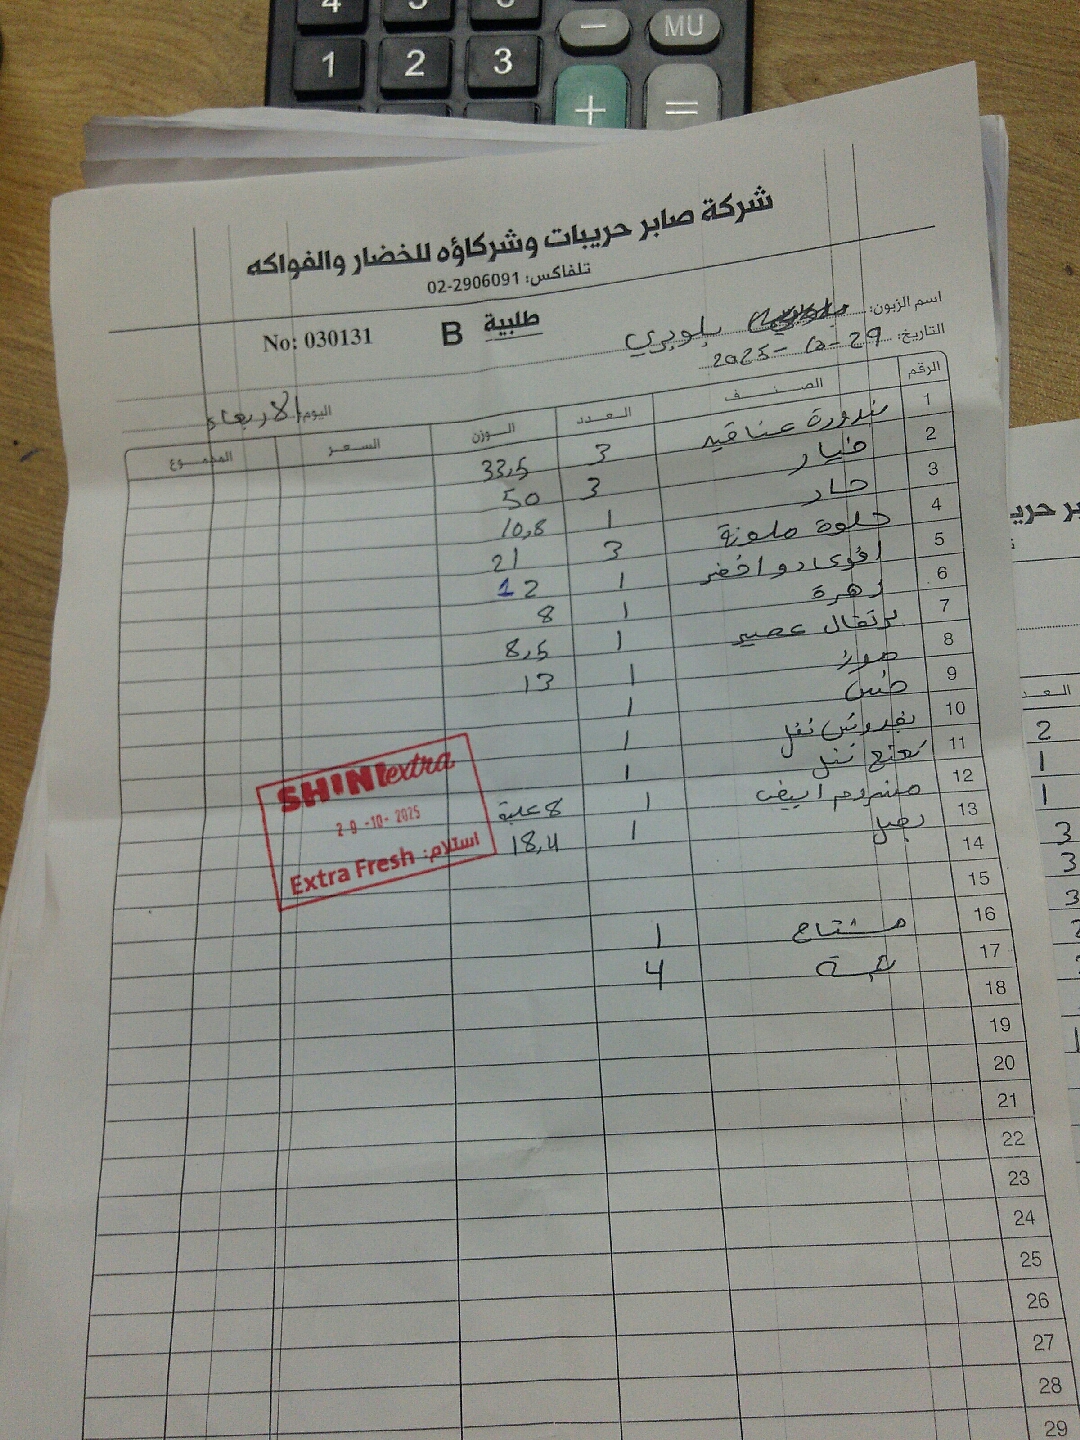 4 5 6 − MU
1 2 3 + =
شركة صابر حريبات وشركاؤه للخضار والفواكه
تلفاكس: 02-2906091
No: 030131 B طلبية
اسم الزبون: بلوبري
التاريخ: 29-10-2025
اليوم: الاربعاء
الرقم الصنف العدد الوزن السعر المجموع
1 بندورة عناقيد 3 33,5
2 خيار 3 50
3 حار 1 10,8
4 حلوة ملونة 3 21
5 افوكادو اخضر 1 12
6 زهرة 1 8
7 برتقال عصير 1 8,5
8 موز 1 13
9 خس 1
10 بقدونس نفل 1
11 نعنع نفل 1
12 مشروم ابيض 1 8 علبة
13 بصل 1 18,4
14
15
16 مشتاح 1
17 4
18
19
20
21
22
23
24
25
26
27
28
29
SHINI extra
29-10-2025
استلام: Extra Fresh
بر حريب
العدد
2
1
1
3
3
3
2
1